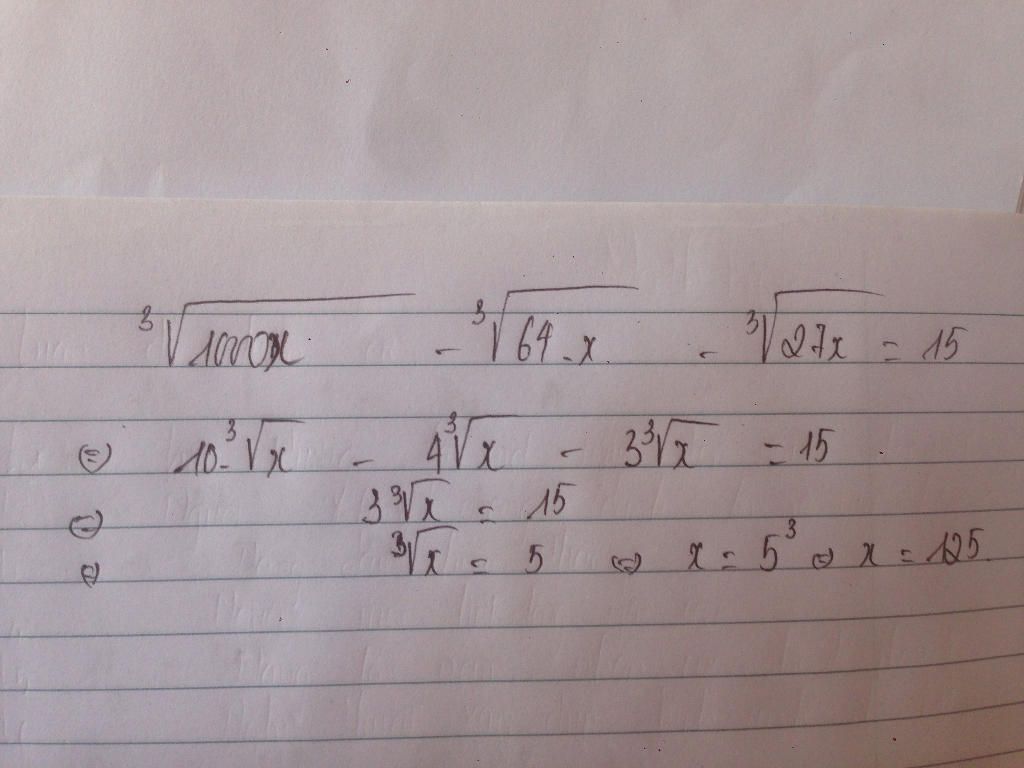 ∛1000x - ∛64.x - ∛27x = 15
⇔ 10.∛x - 4∛x - 3∛x = 15
⇔ 3∛x = 15
⇔ ∛x = 5 ⇔ x = 5³ ⇔ x = 125.